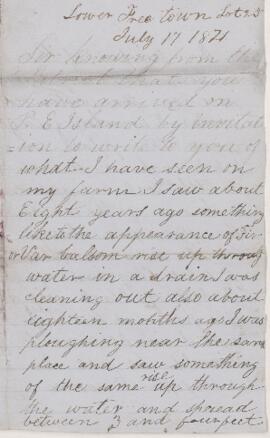 Lower Free town Lot 25
July 17 1871
Sir knowing from the
that you
have arrived on
P. E Island by invitat
=ion to write to you of
what I have seen on
my farm I saw about
Eight years ago something
like to the appearance of Fir
or Var balsom rise up through
water in a drain I was
cleaning out also about
eighteen months ago I was
ploughing near the same
place and saw something
of the same rise up through
the water and spread
between 3 and four feet